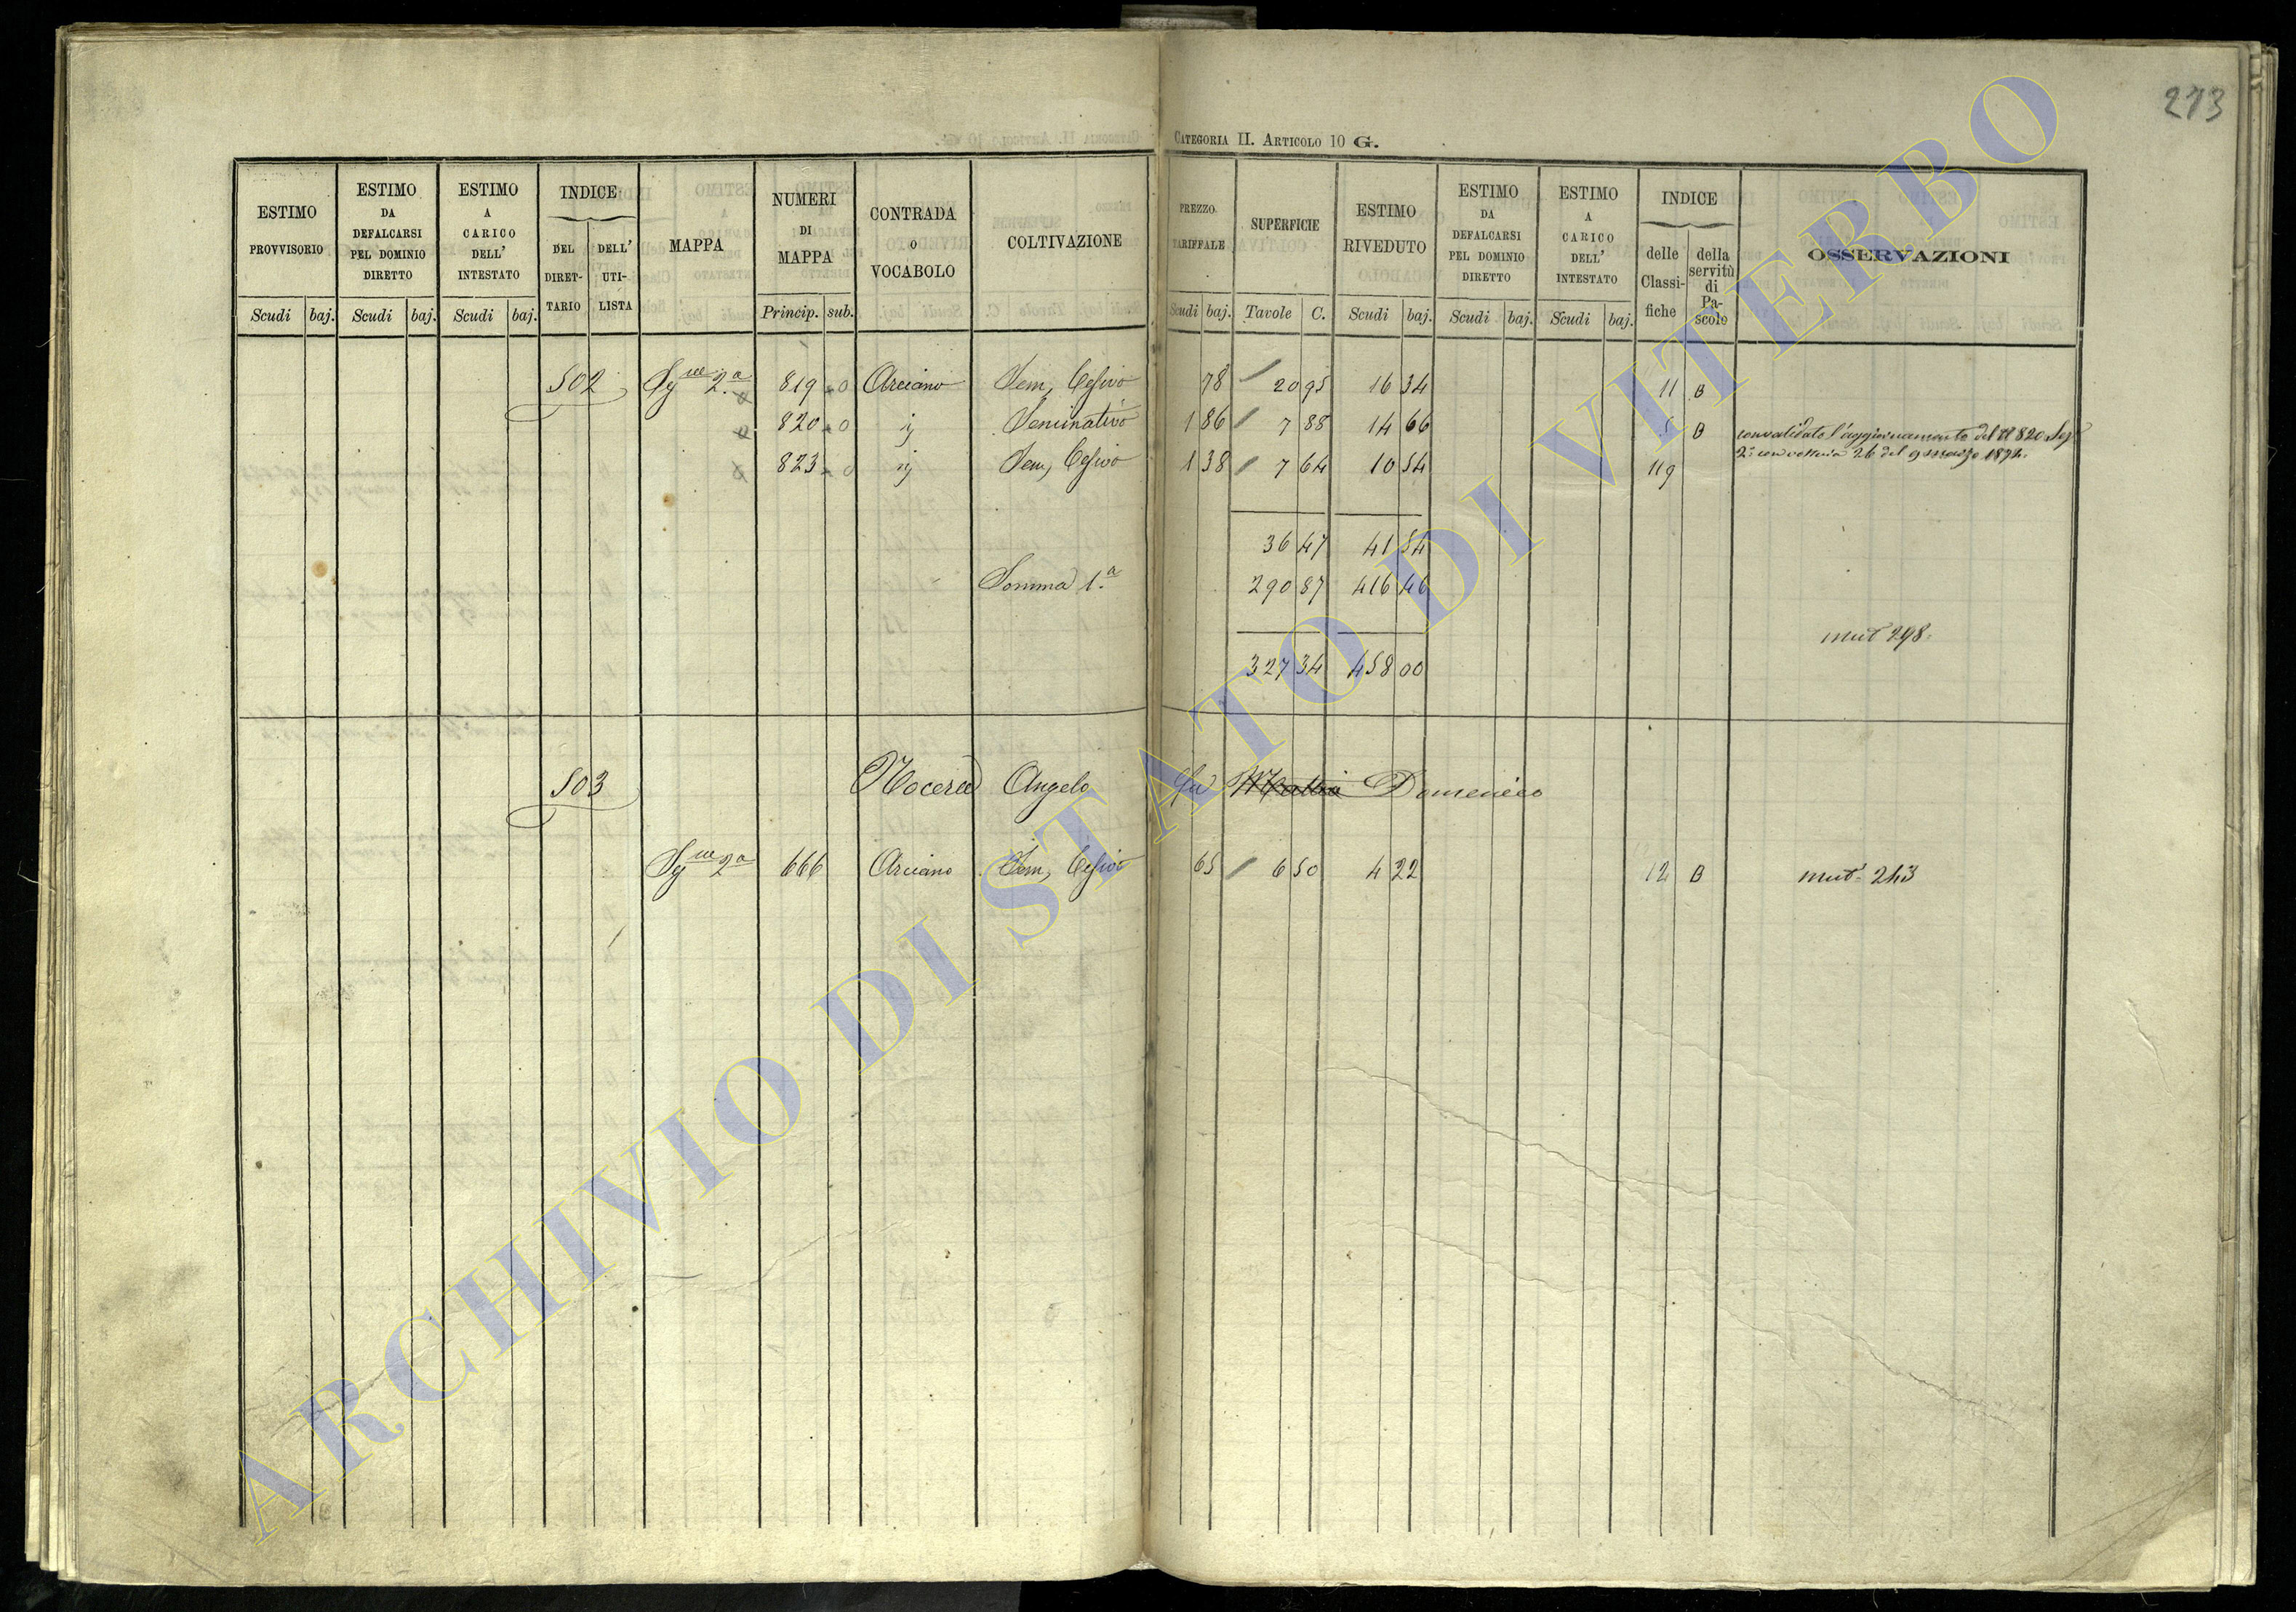 273
CATEGORIA II. ARTICOLO 10 G.
ESTIMO PROVVISORIO
Scudi baj.
ESTIMO DA DEFALCARSI PEL DOMINIO DIRETTO
Scudi baj.
ESTIMO A CARICO DELL' INTESTATO
Scudi baj.
INDICE
DEL DIRETTARIO
DELL' UTILISTA
MAPPA
NUMERI DI MAPPA
Princip. sub.
CONTRADA O VOCABOLO
COLTIVAZIONE
PREZZO TARIFFALE
Scudi baj.
SUPERFICIE
Tavole C.
ESTIMO RIVEDUTO
Scudi baj.
ESTIMO DA DEFALCARSI PEL DOMINIO DIRETTO
Scudi baj.
ESTIMO A CARICO DELL' INTESTATO
Scudi baj.
INDICE
delle Classifiche
della servitù di Pascolo
OSSERVAZIONI
502 2.a 819 Arciano Sem, 78 20 95 16 34 11 B
820 ij Seminativo 1 86 7 88 14 66 5 B convalidato l'aggiornamento del N 820 Sez
823 ij Sem, 1 38 7 64 10 54 119 2a con voltura 26 del 9 marzo 1874.
36 47 41 54
Somma 1.a 290 87 416 46
mut 298.
327 34 458 00
503 Nocera Angelo fu Mattia Domenico
2a 666 Arciano Sem, 65 6 50 4 22 12 B mut. 243
ARCHIVIO DI STATO DI VITERBO